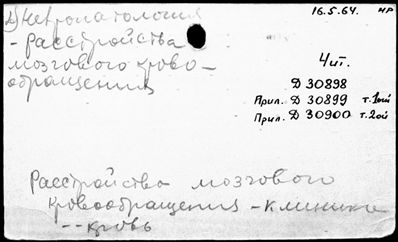 2) Невропатология
- расстройства
мозгового крово-
обращения
16.5.64. нр
4 шт.
Д 30898
Прил. Д 30899 т. 1ый
Прил. Д 30900 т. 2ой
Расстройства мозгового
кровообращения - клиника
-- кровь